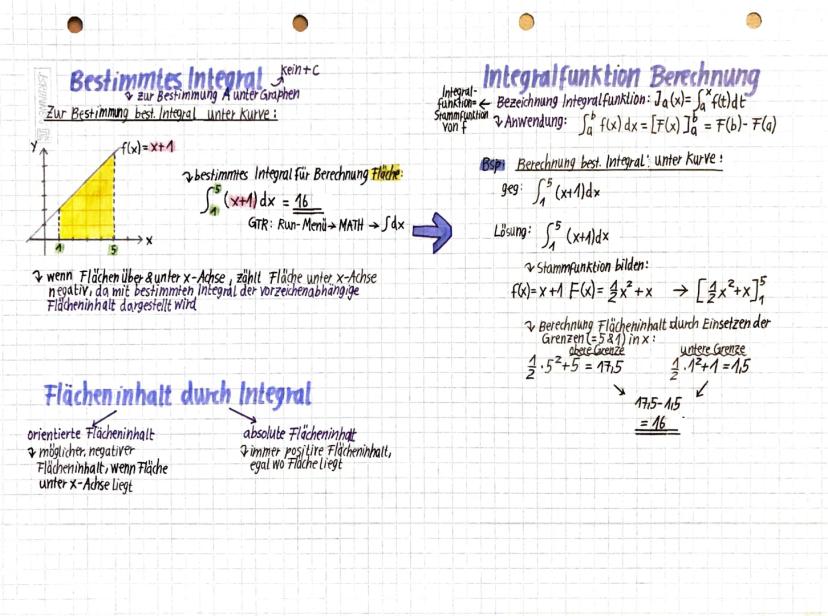 Bestimmtes Integral
kein + C
↴ zur Bestimmung A unter Graphen
Zur Bestimmung best. Integral unter Kurve:
y
f(x) = x+1
x
1
5
↴ bestimmtes Integral für Berechnung Fläche:
∫₁⁵ (x+1) dx = 16
GTR: Run-Menü → MATH → ∫dx
↴ wenn Flächen über & unter x-Achse, zählt Fläche unter x-Achse
negativ, da mit bestimmten Integral der vorzeichenabhängige
Flächeninhalt dargestellt wird
Flächeninhalt durch Integral
orientierte Flächeninhalt
↴ möglicher, negativer
Flächeninhalt, wenn Fläche
unter x-Achse liegt
absolute Flächeninhalt
↴ immer positive Flächeninhalt,
egal wo Fläche liegt
Integralfunktion Berechnung
Integral-
funktion=
Stammfunktion
von f
← Bezeichnung Integralfunktion: Ja(x) = ∫ₐˣ f(t)dt
↴ Anwendung: ∫ₐᵇ f(x) dx = [F(x)]ₐᵇ = F(b) - F(a)
Bsp: Berechnung best. Integral: unter Kurve:
geg: ∫₁⁵ (x+1)dx
Lösung: ∫₁⁵ (x+1)dx
↴ Stammfunktion bilden:
f(x) = x+1 F(x) = 1/2 x² + x → [1/2 x² + x]₁⁵
↴ Berechnung Flächeninhalt durch Einsetzen der
Grenzen (=5 & 1) in x:
obere Grenze
1/2 · 5² + 5 = 17,5
untere Grenze
1/2 · 1² + 1 = 1,5
17,5 - 1,5
= 16